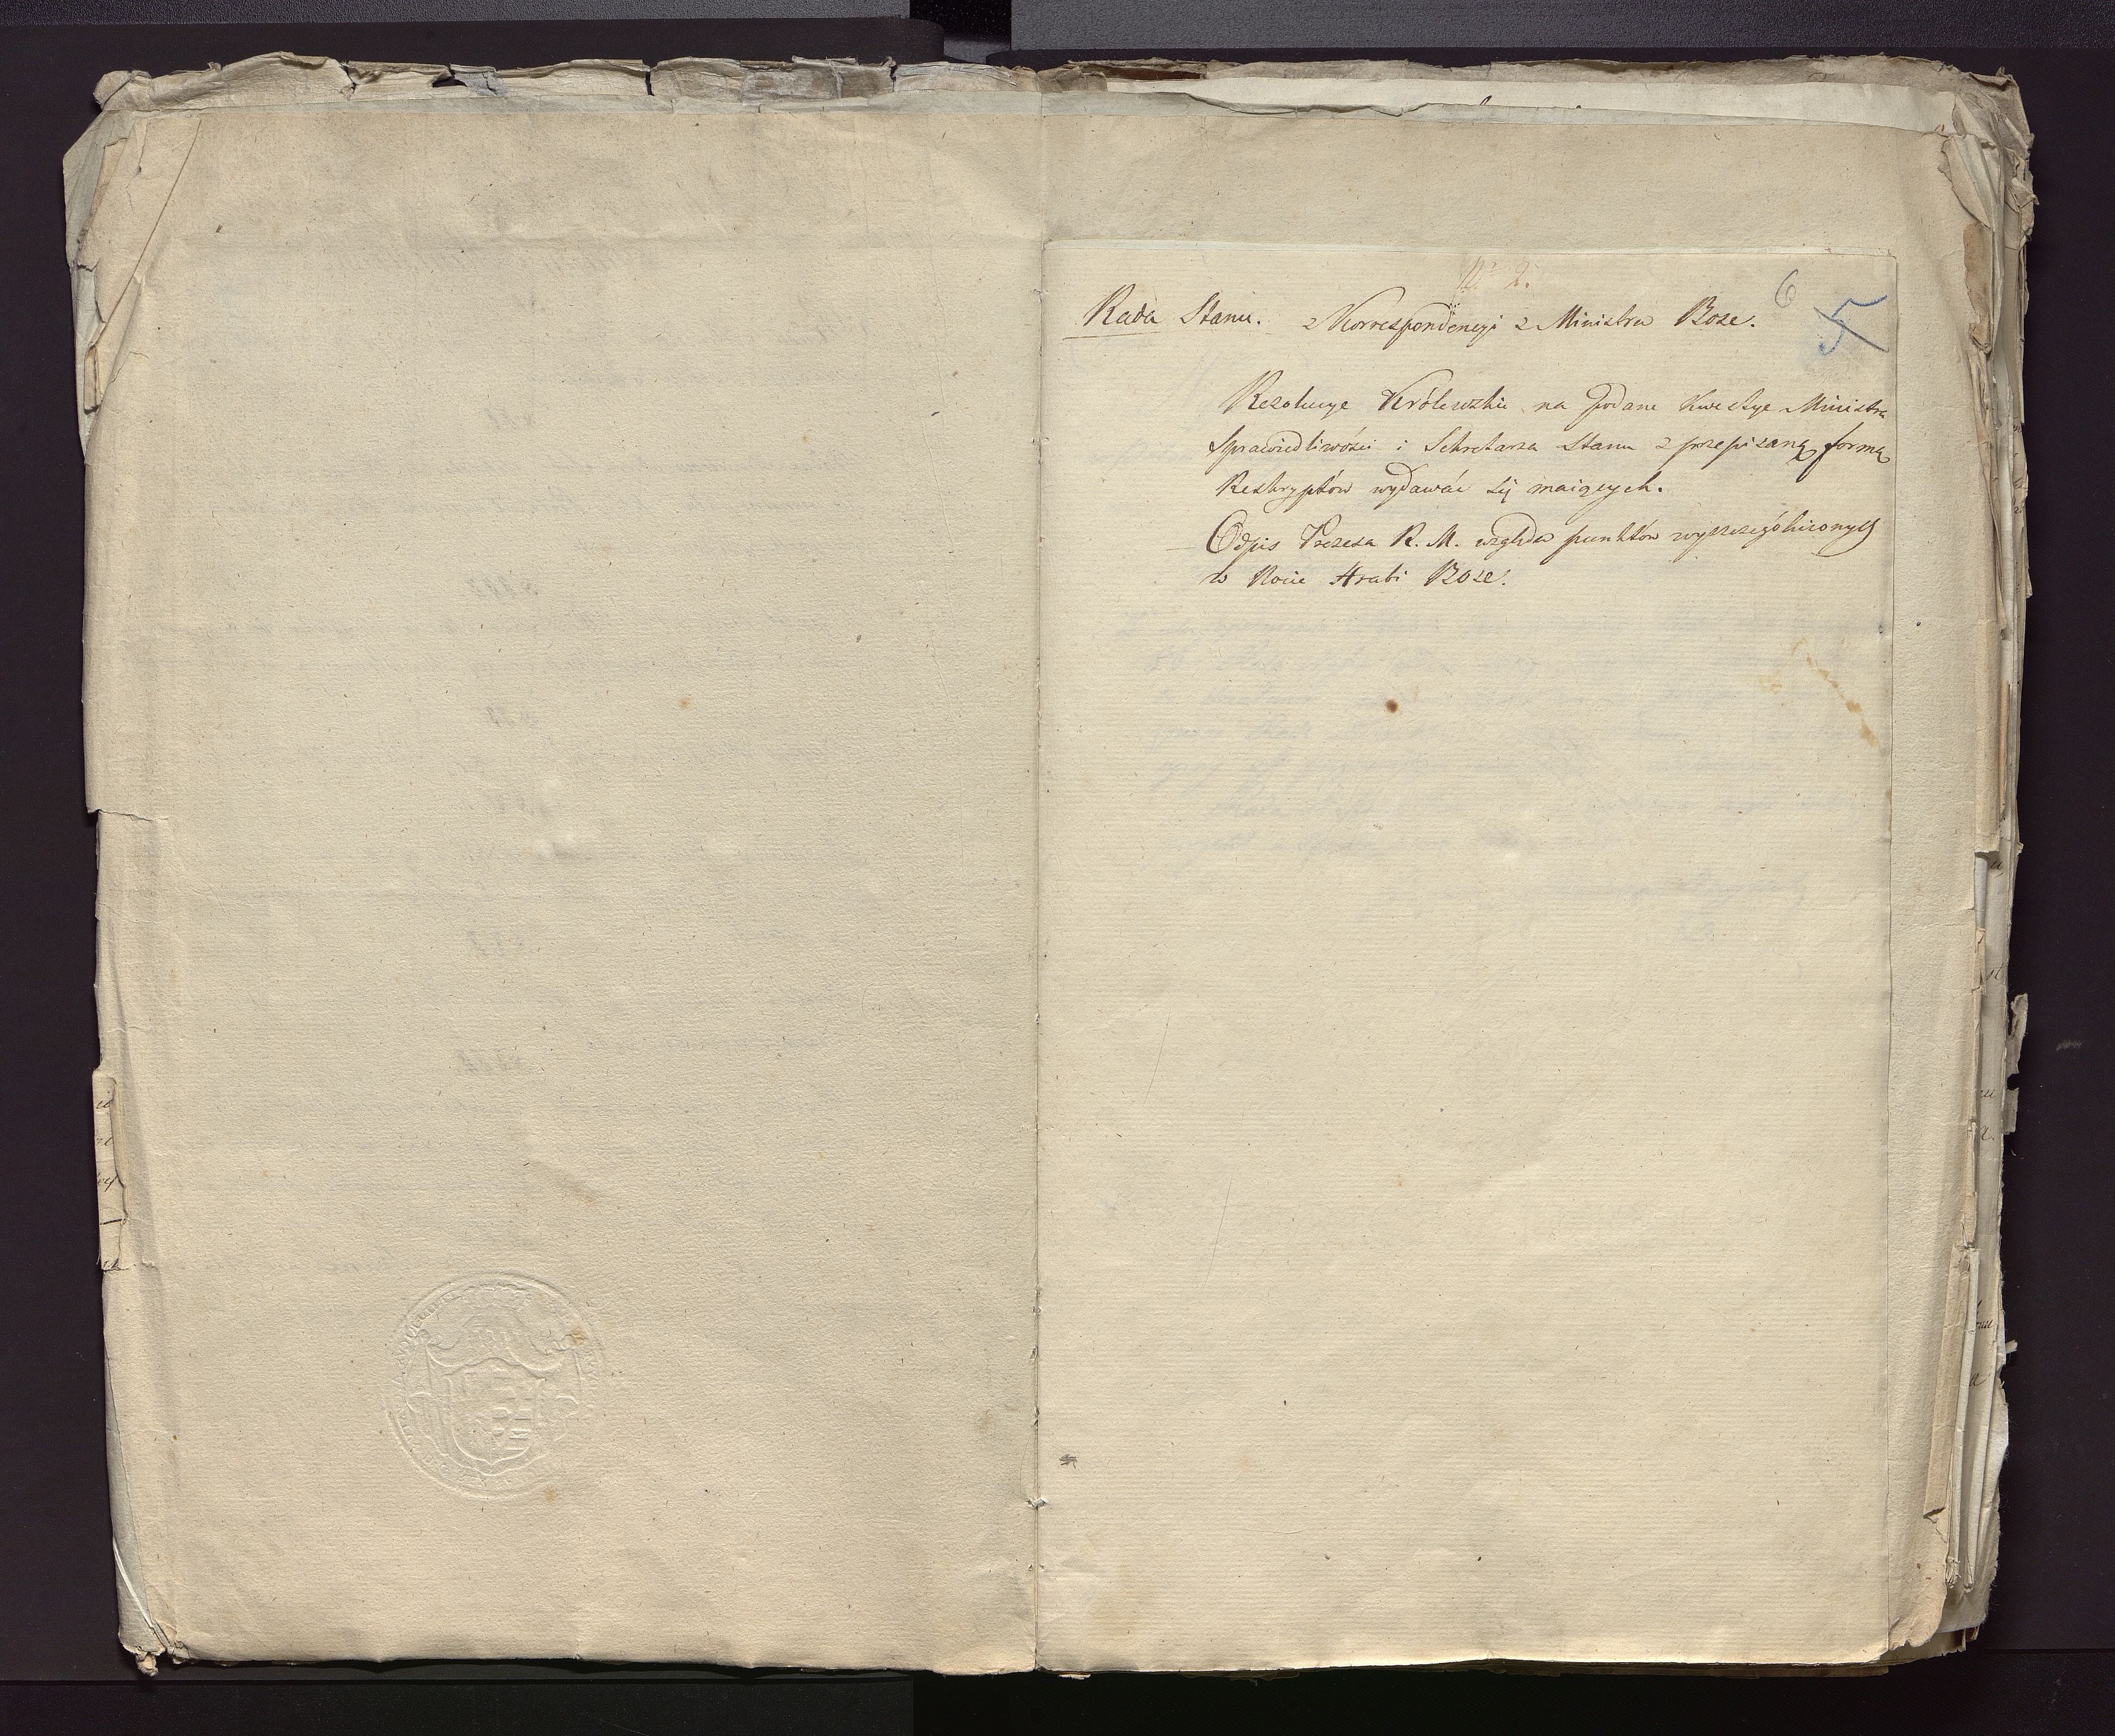 No 2.
6
5
Rada Stanu. z Korrespondencyi z Ministra Bose.
Rezolucye Królewskie na podane Kwestye Ministra
Sprawiedliwości i Sekretarza Stanu z przepisaną formą
Reskryptów wydawać się maiących.
Odpis Prezesa R. M. względa punktów wyszczególnionych
w Nocie Hrabi Bose.